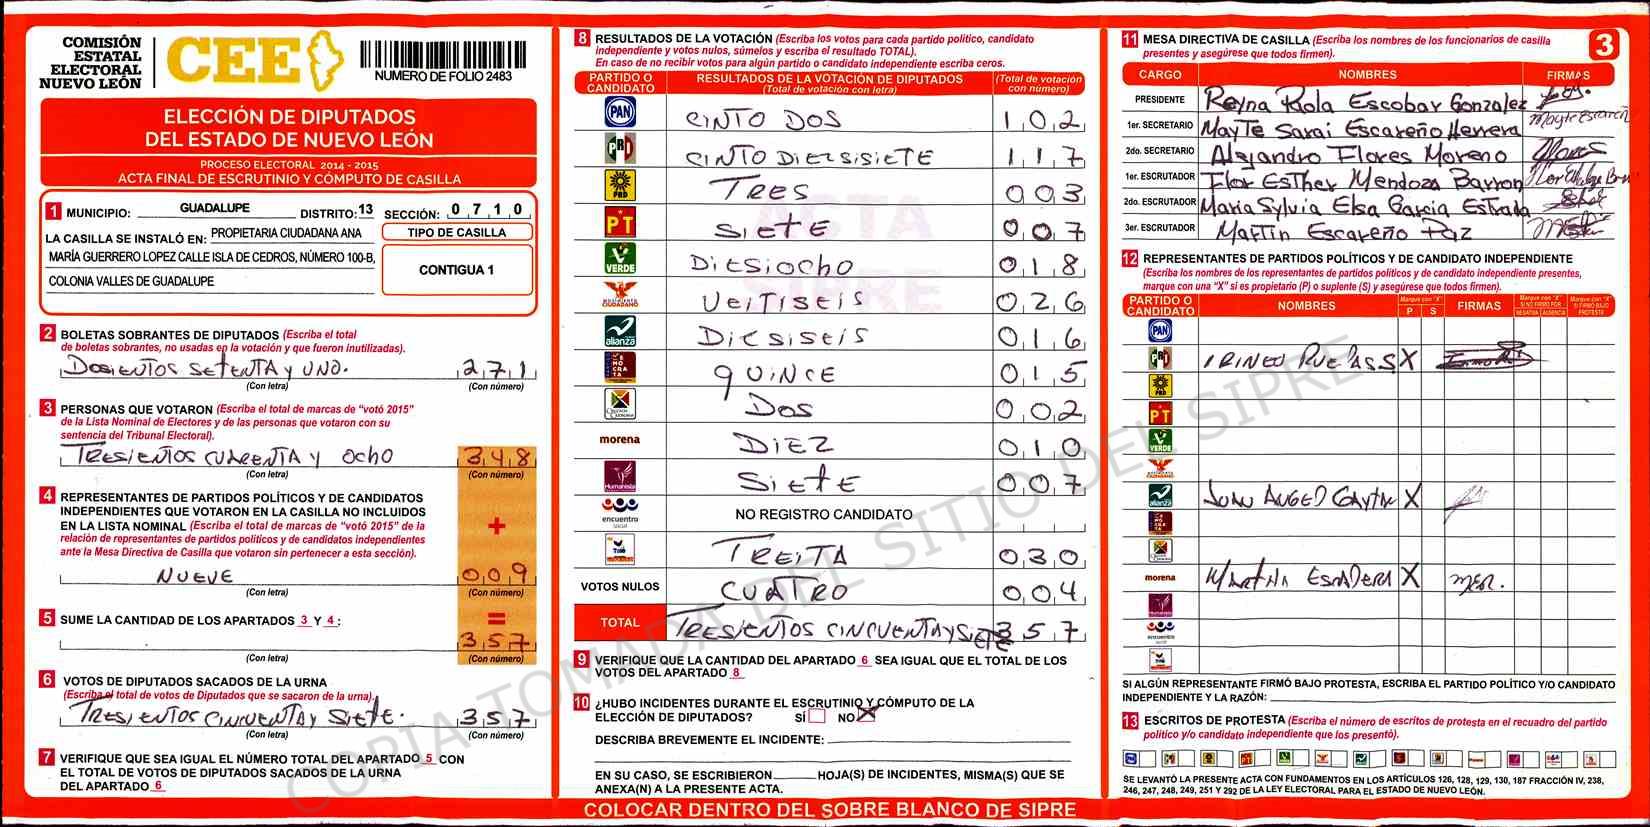 COMISIÓN
ESTATAL
ELECTORAL
NUEVO LEÓN
CEE
NUMERO DE FOLIO 2483
ELECCIÓN DE DIPUTADOS
DEL ESTADO DE NUEVO LEÓN
PROCESO ELECTORAL 2014 - 2015
ACTA FINAL DE ESCRUTINIO Y CÓMPUTO DE CASILLA
1 MUNICIPIO: GUADALUPE DISTRITO: 13 SECCIÓN: 0 7 1 0
LA CASILLA SE INSTALÓ EN: PROPIETARIA CIUDADANA ANA
MARÍA GUERRERO LOPEZ CALLE ISLA DE CEDROS, NÚMERO 100-B,
COLONIA VALLES DE GUADALUPE
TIPO DE CASILLA
CONTIGUA 1
2 BOLETAS SOBRANTES DE DIPUTADOS (Escriba el total
de boletas sobrantes, no usadas en la votación y que fueron inutilizadas).
DOSIENTOS SETENTA y UNO. 2 7 1
(Con letra) (Con número)
3 PERSONAS QUE VOTARON (Escriba el total de marcas de "votó 2015"
de la Lista Nominal de Electores y de las personas que votaron con su
sentencia del Tribunal Electoral).
TRESIENTOS CUARENTA y OCHO 3 4 8
(Con letra) (Con número)
4 REPRESENTANTES DE PARTIDOS POLÍTICOS Y DE CANDIDATOS
INDEPENDIENTES QUE VOTARON EN LA CASILLA NO INCLUIDOS
EN LA LISTA NOMINAL (Escriba el total de marcas de "votó 2015" de la
relación de representantes de partidos políticos y de candidatos independientes
ante la Mesa Directiva de Casilla que votaron sin pertenecer a esta sección).
+
NUEVE 0 0 9
(Con letra) (Con número)
5 SUME LA CANTIDAD DE LOS APARTADOS 3 Y 4:
=
3 5 7
(Con letra) (Con número)
6 VOTOS DE DIPUTADOS SACADOS DE LA URNA
(Escriba el total de votos de Diputados que se sacaron de la urna).
TRESIENTOS CINCUENTA y SIETE. 3 5 7
(Con letra) (Con número)
7 VERIFIQUE QUE SEA IGUAL EL NÚMERO TOTAL DEL APARTADO 5 CON
EL TOTAL DE VOTOS DE DIPUTADOS SACADOS DE LA URNA
DEL APARTADO 6
8 RESULTADOS DE LA VOTACIÓN (Escriba los votos para cada partido político, candidato
independiente y votos nulos, súmelos y escriba el resultado TOTAL).
En caso de no recibir votos para algún partido o candidato independiente escriba ceros.
PARTIDO O CANDIDATO
RESULTADOS DE LA VOTACIÓN DE DIPUTADOS
(Total de votación con letra)
(Total de votación con número)
PAN CINTO DOS 1 0 2
PRD CINTO DIERSISIETE 1 1 7
PRD TRES 0 0 3
PT SIETE 0 0 7
VERDE DIESIOCHO 0 1 8
CIUDADANO VEITISEIS 0 2 6
alianza DIESISEIS 0 1 6
DEMOCRATA QUINCE 0 1 5
DOS 0 0 2
morena DIEZ 0 1 0
Humanista SIETE 0 0 7
encuentro social NO REGISTRO CANDIDATO
TREITA 0 3 0
VOTOS NULOS CUATRO 0 0 4
TOTAL TRESIENTOS CINCUENTA y SIETE 3 5 7
9 VERIFIQUE QUE LA CANTIDAD DEL APARTADO 6 SEA IGUAL QUE EL TOTAL DE LOS
VOTOS DEL APARTADO 8
10 ¿HUBO INCIDENTES DURANTE EL ESCRUTINIO Y CÓMPUTO DE LA
ELECCIÓN DE DIPUTADOS? SÍ NO X
DESCRIBA BREVEMENTE EL INCIDENTE:
EN SU CASO, SE ESCRIBIERON HOJA(S) DE INCIDENTES, MISMA(S) QUE SE
ANEXA(N) A LA PRESENTE ACTA.
11 MESA DIRECTIVA DE CASILLA (Escriba los nombres de los funcionarios de casilla
presentes y asegúrese que todos firmen).
3
CARGO NOMBRES FIRMAS
PRESIDENTE Reyna Escobar Gonzalez
1er. SECRETARIO MayTe Sarai Escareño Herrera
2do. SECRETARIO Alejandro Flores Moreno
1er. ESCRUTADOR Flor EsTher Mendoza Barron
2do. ESCRUTADOR Maria Sylvia Elsa Garcia Estrada
3er. ESCRUTADOR Martin Escareño Paz
12 REPRESENTANTES DE PARTIDOS POLÍTICOS Y DE CANDIDATO INDEPENDIENTE
(Escriba los nombres de los representantes de partidos políticos y de candidato independiente presentes,
marque con una "X" si es propietario (P) o suplente (S) y asegúrese que todos firmen).
PARTIDO O CANDIDATO
NOMBRES
Marque con "X"
P S
FIRMAS
Marque con "X" SI NO FIRMÓ POR
NEGATIVA AUSENCIA
Marque con "X" SI FIRMÓ BAJO PROTESTA
PAN
PRD IRINEO RUELAS S X
PRD
PT
VERDE
alianza JUAN ANGEL GAYTAN X
morena MARTHA X
encuentro
SI ALGÚN REPRESENTANTE FIRMÓ BAJO PROTESTA, ESCRIBA EL PARTIDO POLÍTICO Y/O CANDIDATO
INDEPENDIENTE Y LA RAZÓN:
13 ESCRITOS DE PROTESTA (Escriba el número de escritos de protesta en el recuadro del partido
político y/o candidato independiente que los presentó).
SE LEVANTÓ LA PRESENTE ACTA CON FUNDAMENTOS EN LOS ARTÍCULOS 126, 128, 129, 130, 187 FRACCIÓN IV, 238,
246, 247, 248, 249, 251 Y 292 DE LA LEY ELECTORAL PARA EL ESTADO DE NUEVO LEÓN.
COLOCAR DENTRO DEL SOBRE BLANCO DE SIPRE
ACTA
SIPRE
COPIA TOMADA DEL SITIO DEL SIPRE